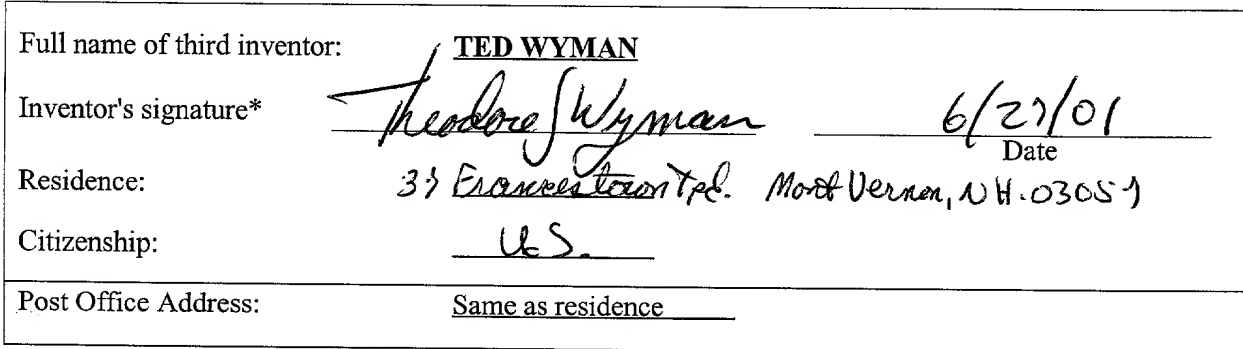 Full name of third inventor: TED WYMAN
Inventor's signature* Theodore J Wyman 6/27/01
Date
Residence: 37 Francestown Tpk. Mont Vernon, NH. 03057
Citizenship: U.S.
Post Office Address: Same as residence